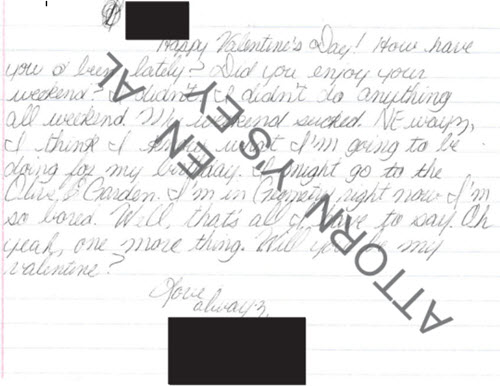 Happy Valentine's Day! How have
you been lately? Did you enjoy your
weekend? I didn't I didn't do anything
all weekend. My weekend sucked. NE wayz,
I think I know what I'm going to be
doing for my birthday. I might go to the
Olive Garden. I'm in Geometry right now I'm
so bored. Well, that's all I have to say. Oh
yeah, one more thing. Will you be my
valentine?
Love
alwayz,
EN AL
ATTORN Y'S EY